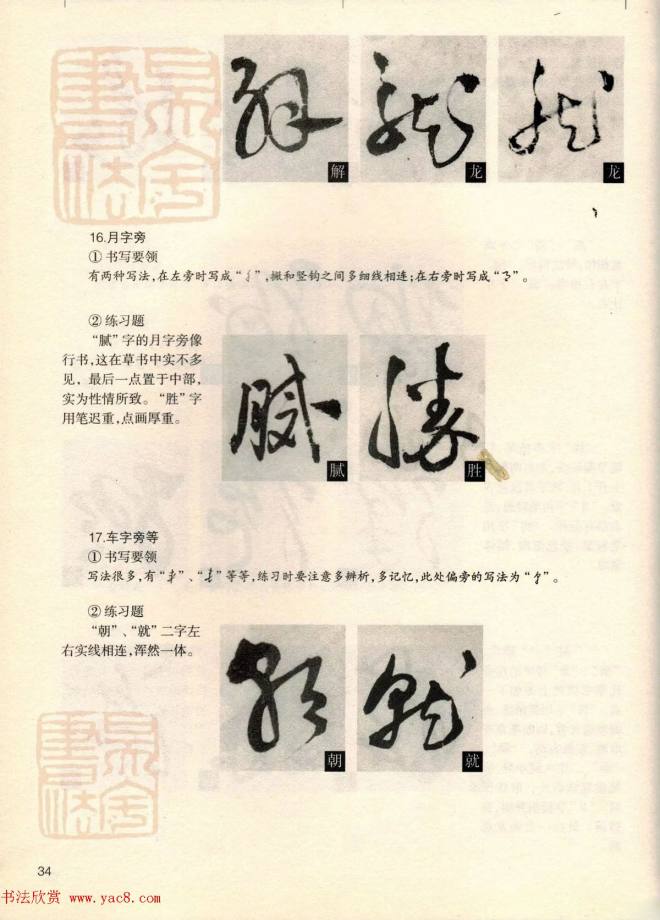 解
龙
龙
16.月字旁
①书写要领
有两种写法，在左旁时写成“”，撇和竖钩之间多细线相连；在右旁时写成“”。
②练习题
“腻”字的月字旁像
行书，这在草书中实不多
见，最后一点置于中部，
实为性情所致。“胜”字
用笔迟重，点画厚重。
腻
胜
17.车字旁等
①书写要领
写法很多，有“”、“”等等，练习时要注意多辨析，多记忆，此处偏旁的写法为“”。
②练习题
“朝”、“就”二字左
右实线相连，浑然一体。
朝
就
34
书法欣赏 www.yac8.com